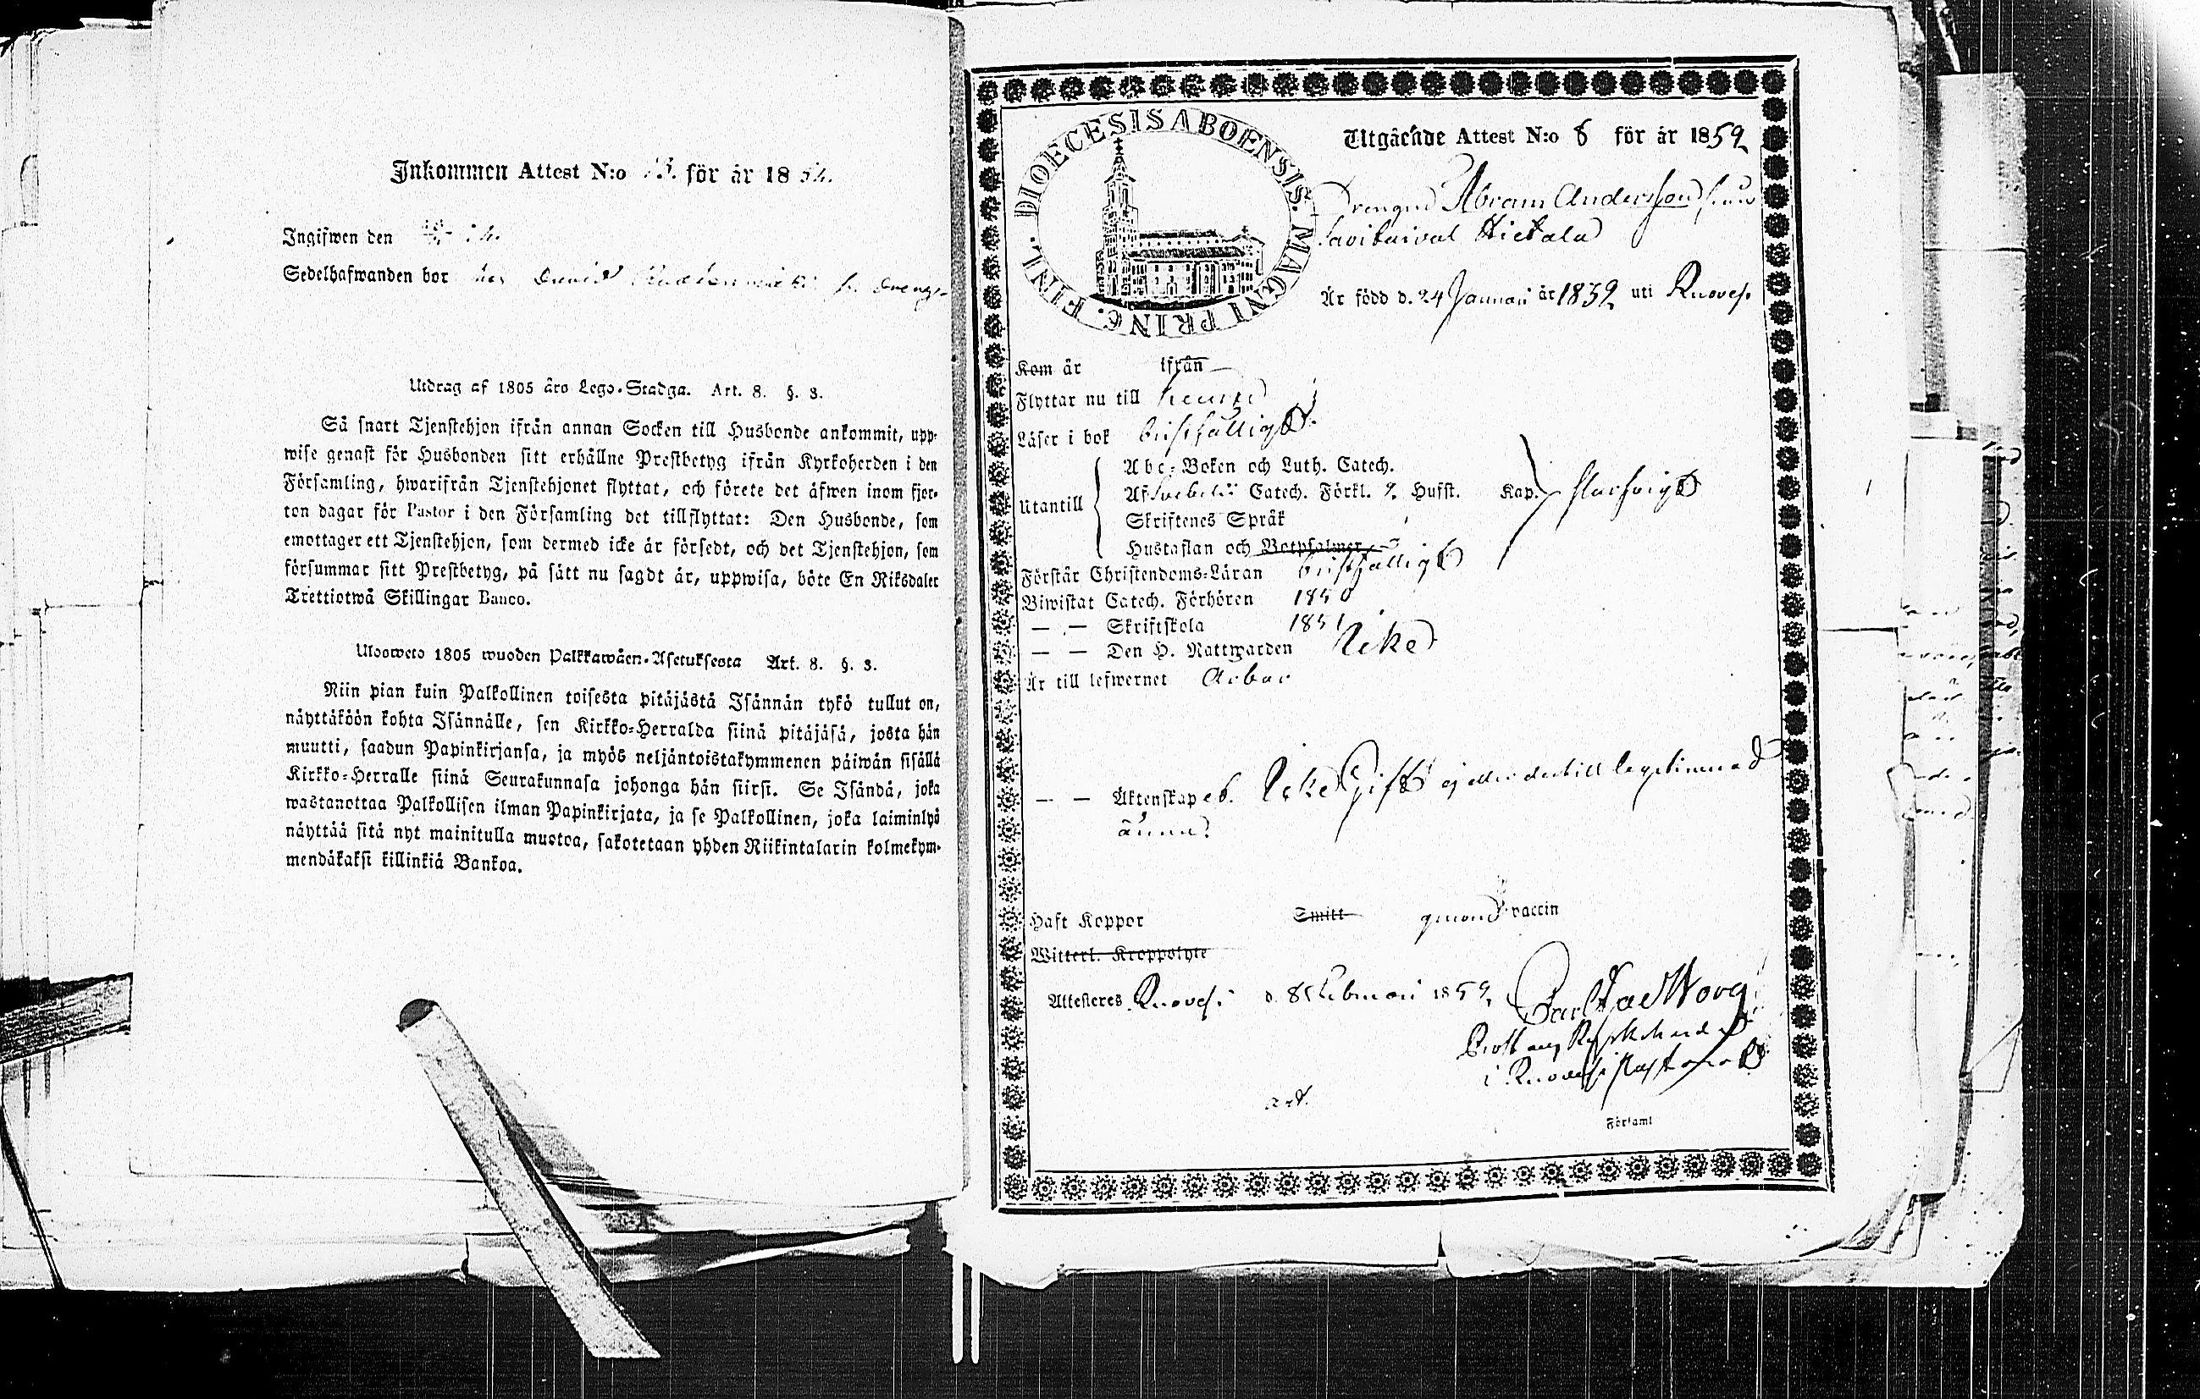 Inkommen Attest N:o 13. för år 18
Ingifwen den
Sedelhafwanden bor hos David
Utdrag af 1805 års Lego-Stadga. Art. 8. §. 3.
Så snart Tjenstehjon ifrån annan Socken till Husbonde ankommit, upp-
wise genast för Husbonden sitt erhållne Prestbetyg ifrån Kyrkoherden i den
Församling, hwarifrån Tjenstehjonet flyttat, och förete det äfwen inom fjor-
ton dagar för Pastor i den Församling det tillflyttat: Den Husbonde, som
emottager ett Tjenstehjon, som dermed icke är försedt, och det Tjenstehjon, som
försummar sitt Prestbetyg, på sätt nu sagdt är, uppwisa, böte En Riksdaler
Trettiotwå Skillingar Banco.
Ulosweto 1805 wuoden Palkkawäen-Asetuksesta Art. 8. §. 3.
Niin pian kuin Palkollinen toisesta pitäjästä Isännän tykö tullut on,
näyttäköön kohta Isännälle, sen Kirkko-Herralda siinä pitäjäsä, josta hän
muutti, saadun Papinkirjansa, ja myös neljäntoistakymmenen päiwän sisällä
Kirkko-Herralle siinä Seurakunnasa johonga hän siirsi. Se Isändä, joka
wastanottaa Palkollisen ilman Papinkirjata, ja se Palkollinen, joka laiminlyö
näyttää sitä nyt mainitulla muotoa, sakotetaan yhden Riikintalarin kolmekym-
mendäkaksi killinkiä Bankoa.
DIOECESIS ABOENSIS. MAGNI PRINC. FINL.
Utgående Attest N:o 8 för år 1859
Drengen Abram Andersson från
Savitaival Hietala
Är född d. 24 Januari år 1832 uti Ruovesi
Kom år ifrån
Flyttar nu till
Läser i bok bristfälligt
Utantill
Abc-Boken och Luth. Catech.
Af Svebelii Catech. Förkl. Husst. Kap.
Skriftenes Språk
Hustaflan och Botpsalmer
Förstår Christendoms-Läran bristfälligt
Biwistat Catech. Förhören 1850
— — Skriftskola 1851
— — Den H. Nattwarden Icke
Är till lefwernet
— — Äktenskap eb. Icke Gift ej eller dertill legitimerad
ännu
Haft Koppor Smitt genom vaccin
Witterl. Kroppslyte
Attesteras Ruovesi d. 8 Februari 1859
i Ruovesi Pastorat
Församl